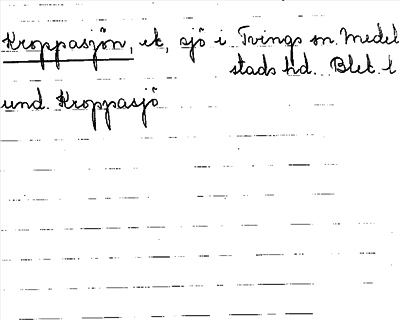 Kroppasjön, ek, sjö i Tvings sn. Medel
stads hd. Blek. l
und. Kroppasjö